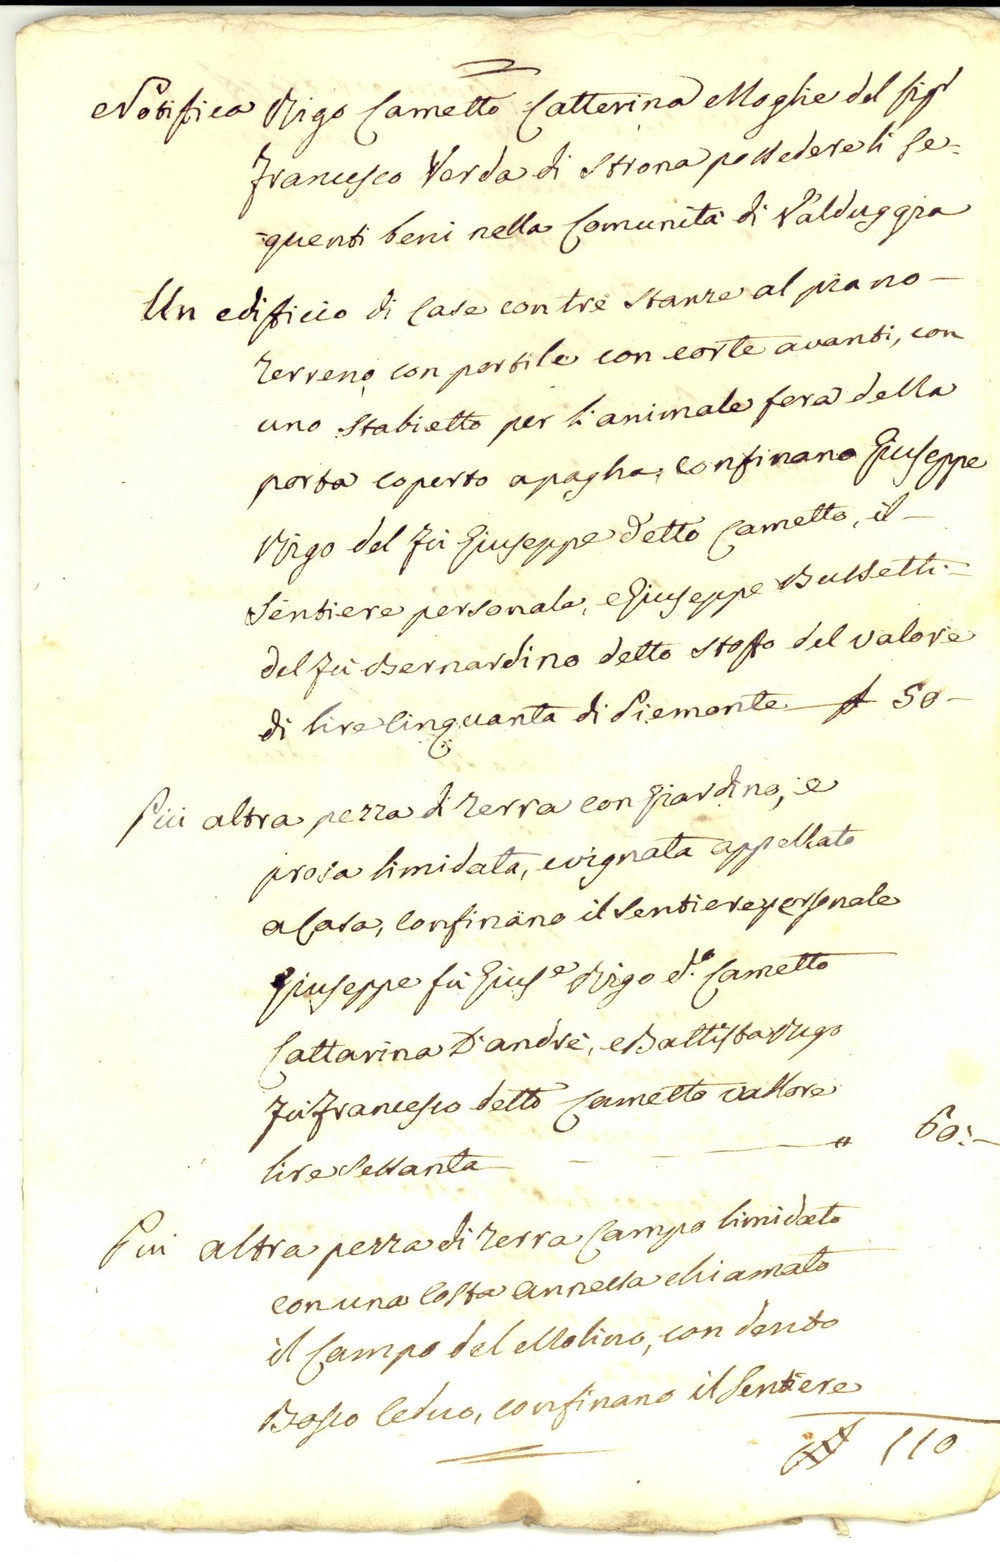 Notifica Rigo Cametto Catterina Moglie del Sigr
Francesco Verda di Strona possedere li se-
-quenti beni nella Comunità di Valduggia
Un edificio di Case con tre stanze al piano-
terreno con portile con corte avanti, con
uno stabietto per l'animale fora della
porta coperto a paglia, confinano Giuseppe
Rigo del fù Giuseppe detto Cametto, il-
Sentiere personale, e Giuseppe Bussetti-
del fù Bernardino detto Stoffo del valore
di lire Cinquanta di Piemonte 50-
Più altra pezza di terra con Giardino, e
prosa limidata, e vignata appellato
a Casa, Confinano il Sentiere personale
Giuseppe fù Giuse Rigo d.o Cametto
Cattarina D'andrè, e Battista Rigo
fù Francesco detto Cametto vallore
lire Sessanta " 60:-
Più altra pezza di terra Campo limidato
con una Costa annessa chiamato
il Campo del Molino, con dento
Bosco Ceduo, confinano il Sentiere
110